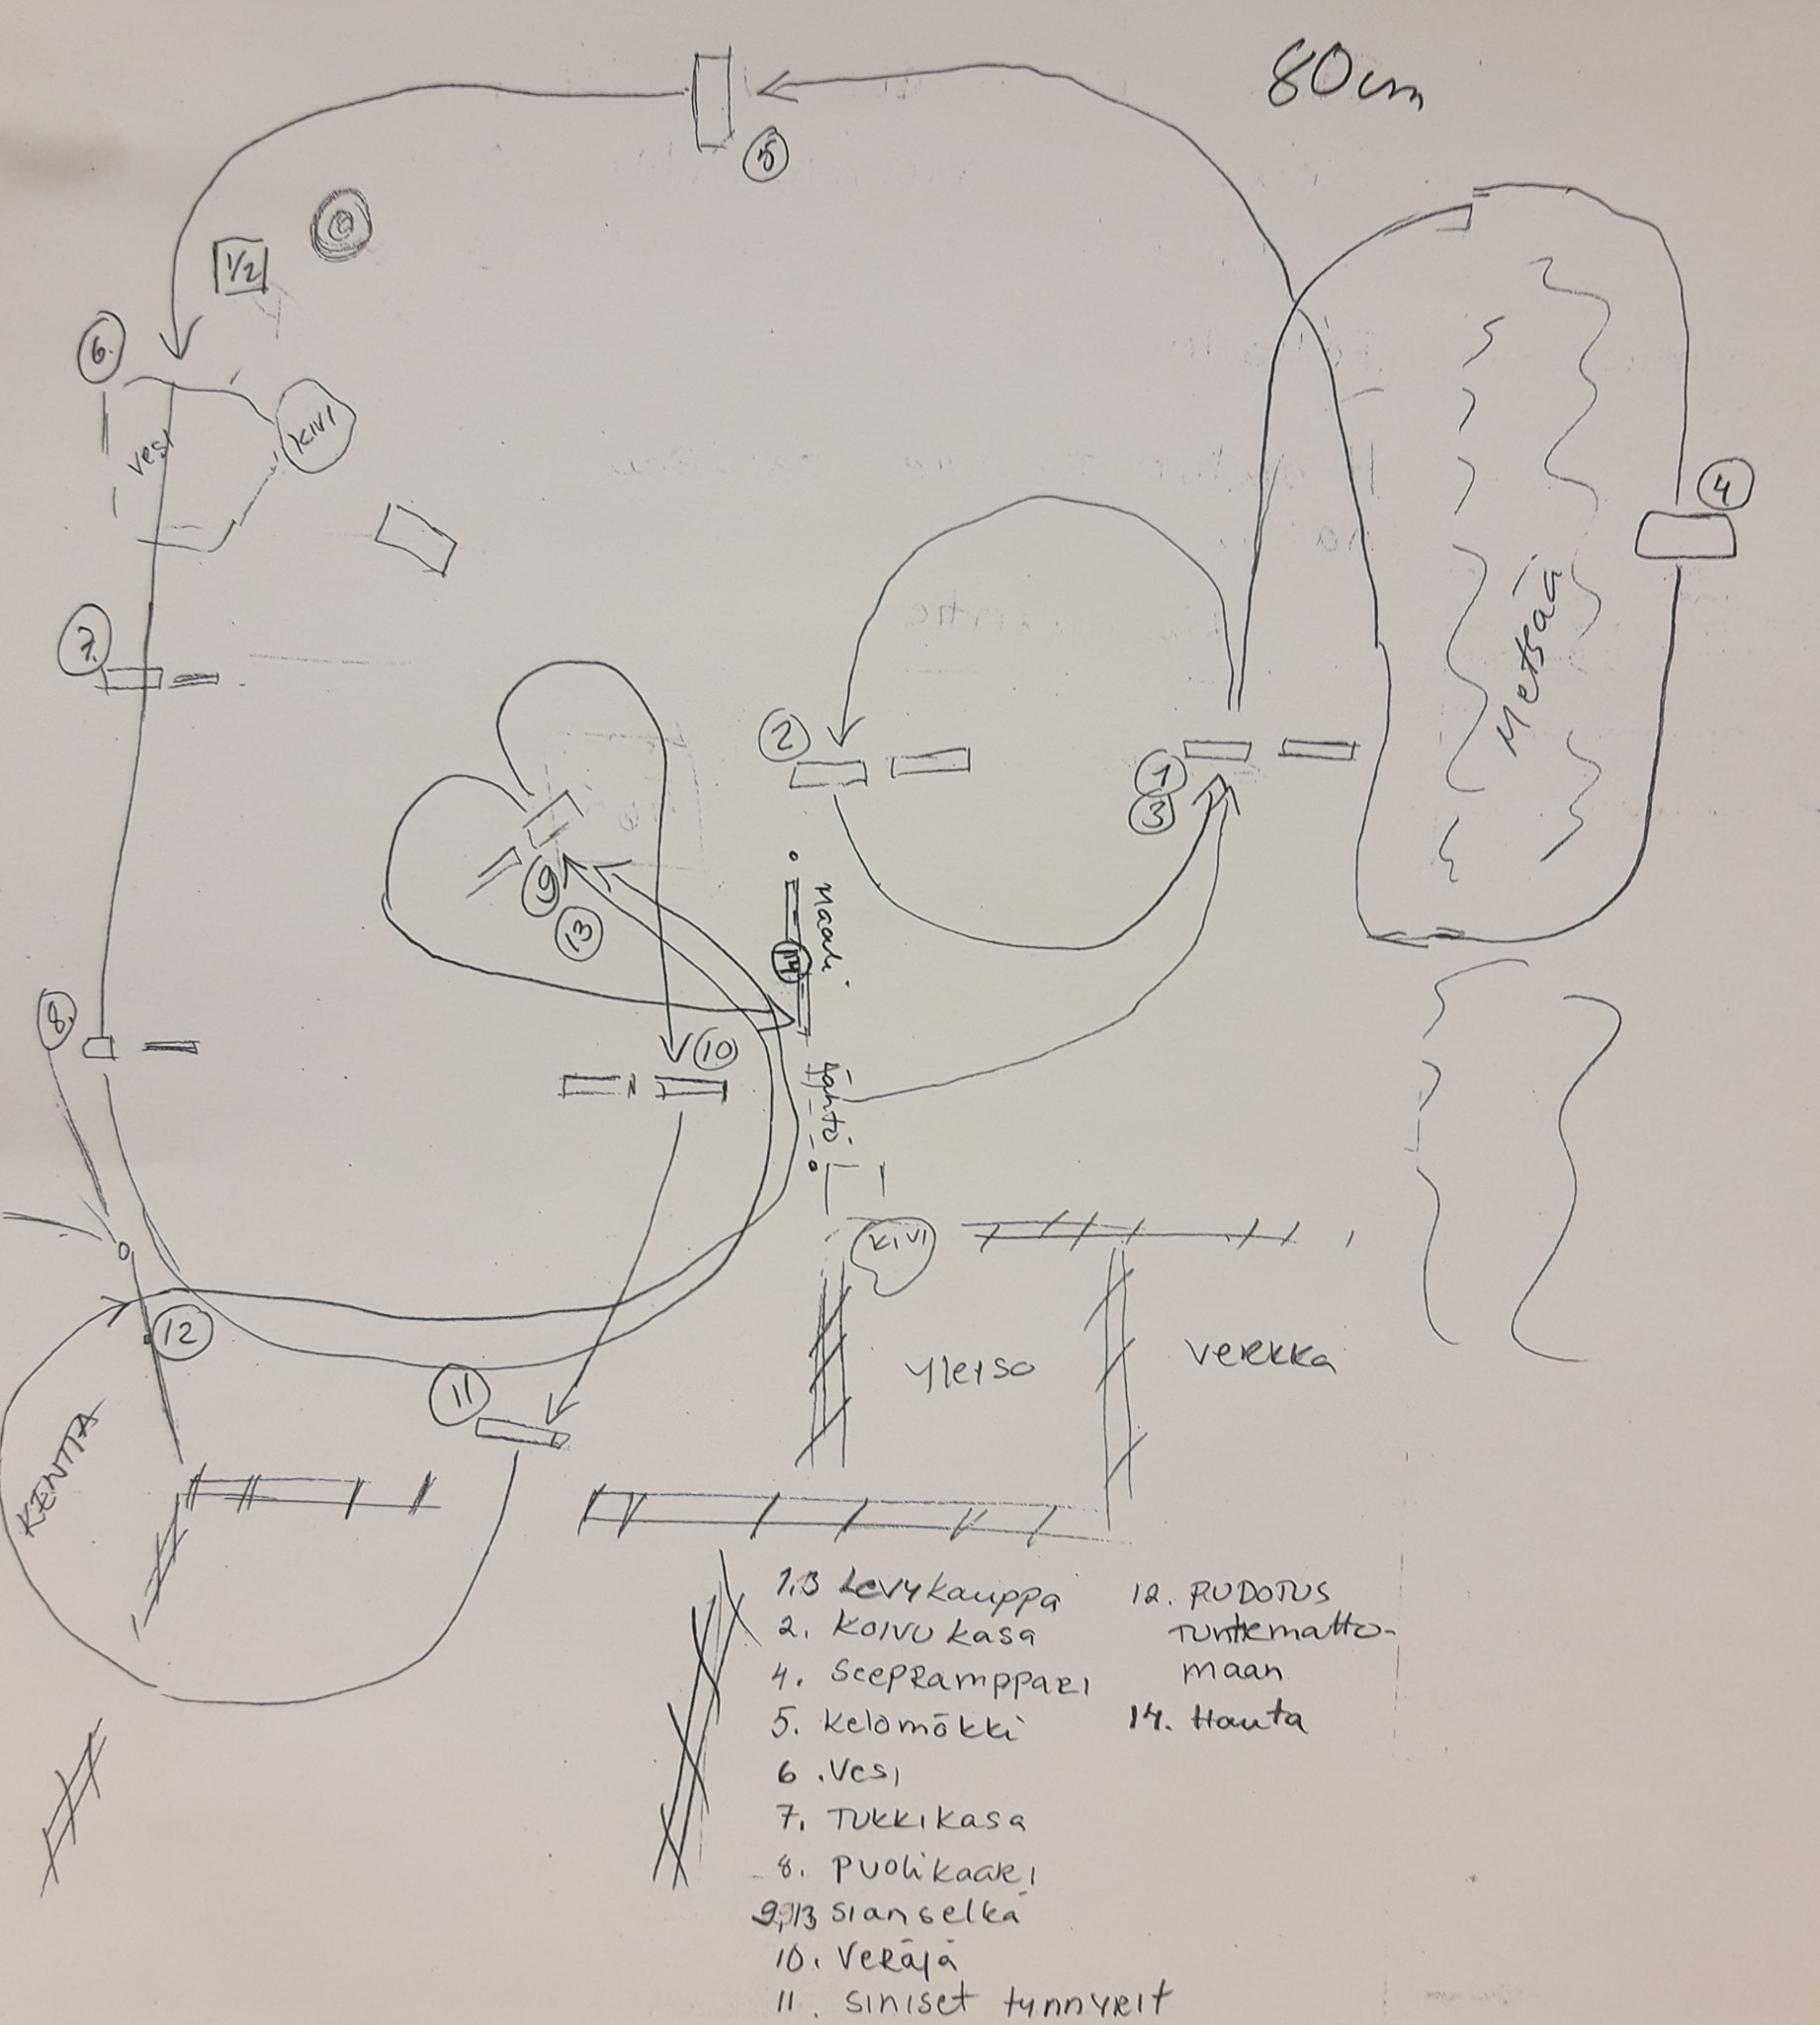 80cm
5
1/2
6.
Kivi
vesi
4
7.
Metsää
2
1
3
9
13
Maali
14
8.
10
Lähtö
KIVI
12
yleisö
verkka
11
KENTTÄ
1,3 Levykauppa
2. Koivukasa
4. Seepramppari
5. Kelomökki
6. Vesi
7. Tukkikasa
8. Puolikaari
9,13 Sianselkä
10. Veräjä
11. Siniset tynnyrit
12. PUDOTUS
tuntematto-
maan
14. Hauta